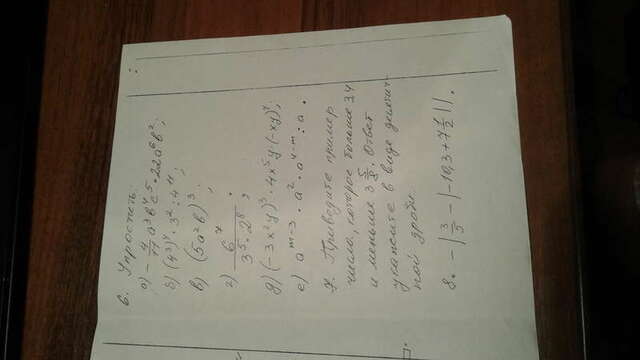 6. Упростить:
а) - 4/11 a³b⁴c⁵ · 22a⁶b²;
б) (4³)⁴ · 3² : 4¹¹;
в) (5a²b)³;
г) 6⁷ / 3⁵·2⁸;
д) (-3x²y)³ · 4x⁵y·(-xy)⁷;
е) a^(m-3) · a² · a^(4-m) : a.
7. Приведите пример
числа, которое больше 3,4
и меньше 3 5/8. Ответ
укажите в виде десятич
ной дроби.
8. -|3/5 - |-10,3+7 1/2||.